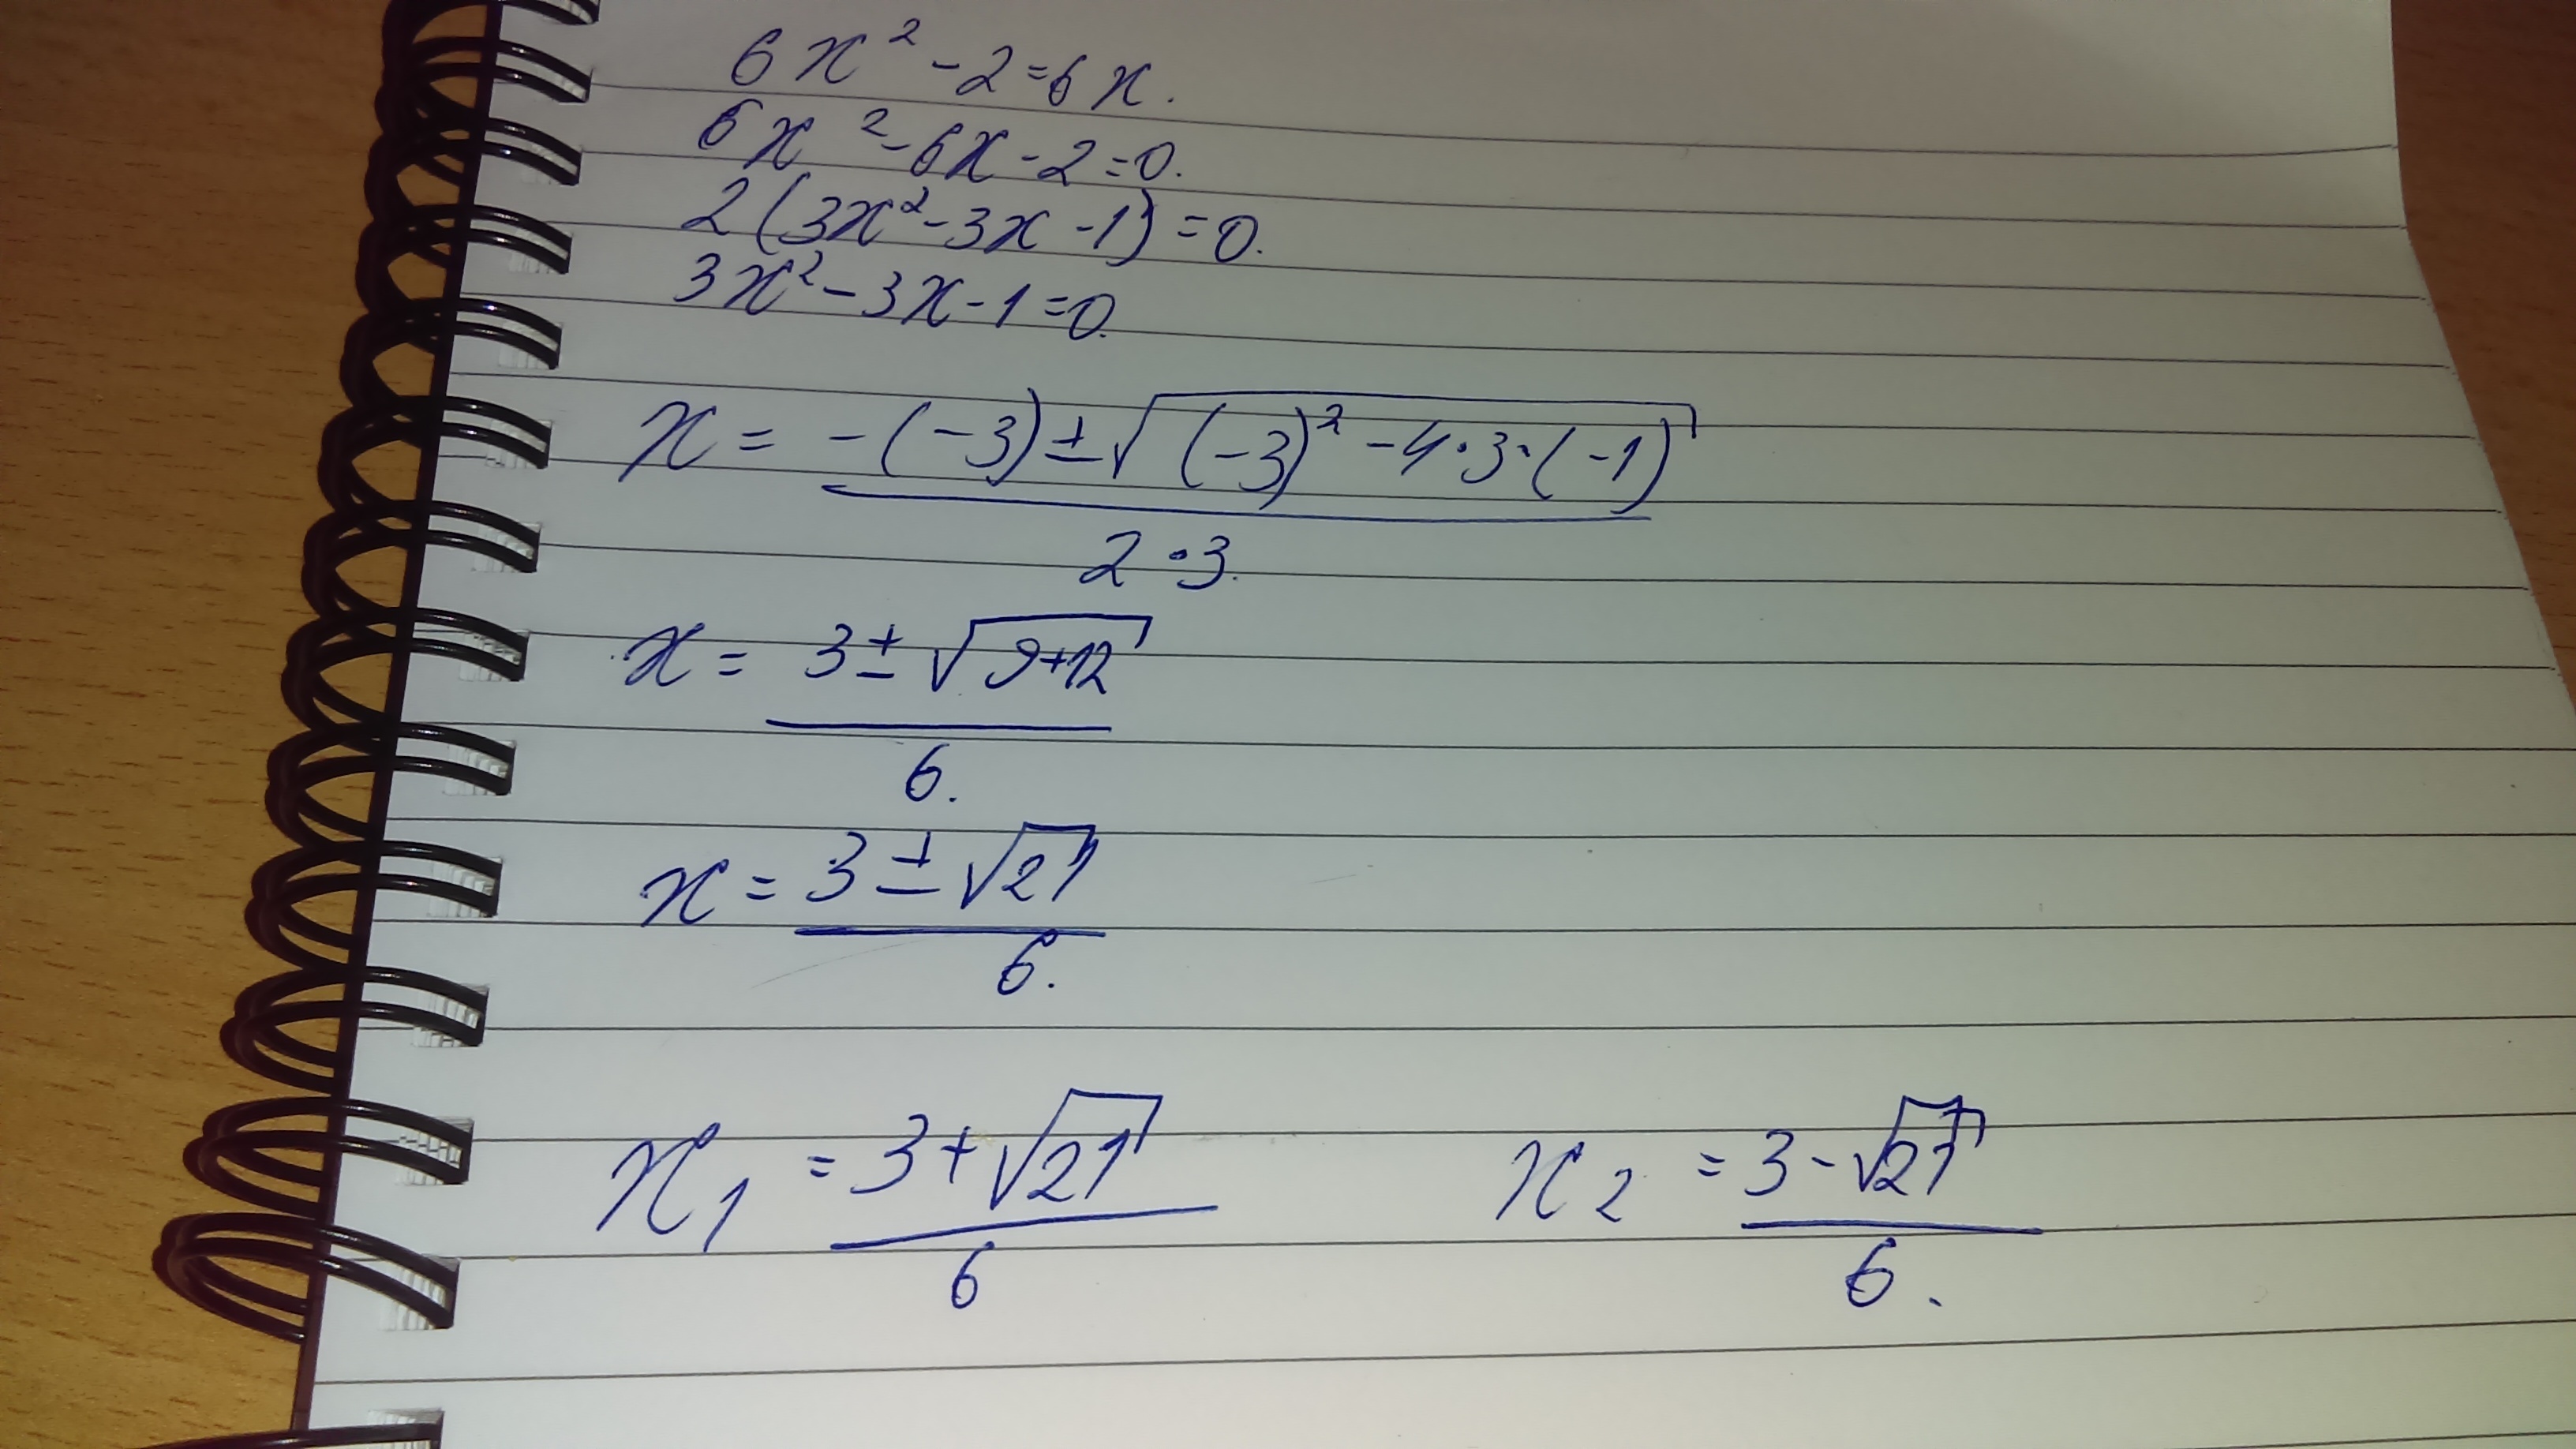 6x² - 2 = 6x.
6x² - 6x - 2 = 0.
2(3x² - 3x - 1) = 0.
3x² - 3x - 1 = 0.
x = -(-3) ± √(-3)² - 4·3·(-1)
2·3.
x = 3 ± √9+12
6.
x = 3 ± √21
6.
x₁ = 3 + √21 x₂ = 3 - √21
6 6.